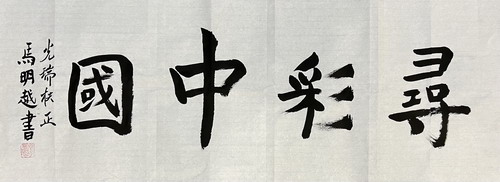 尋彩中國
光瑞校正
馬明越書